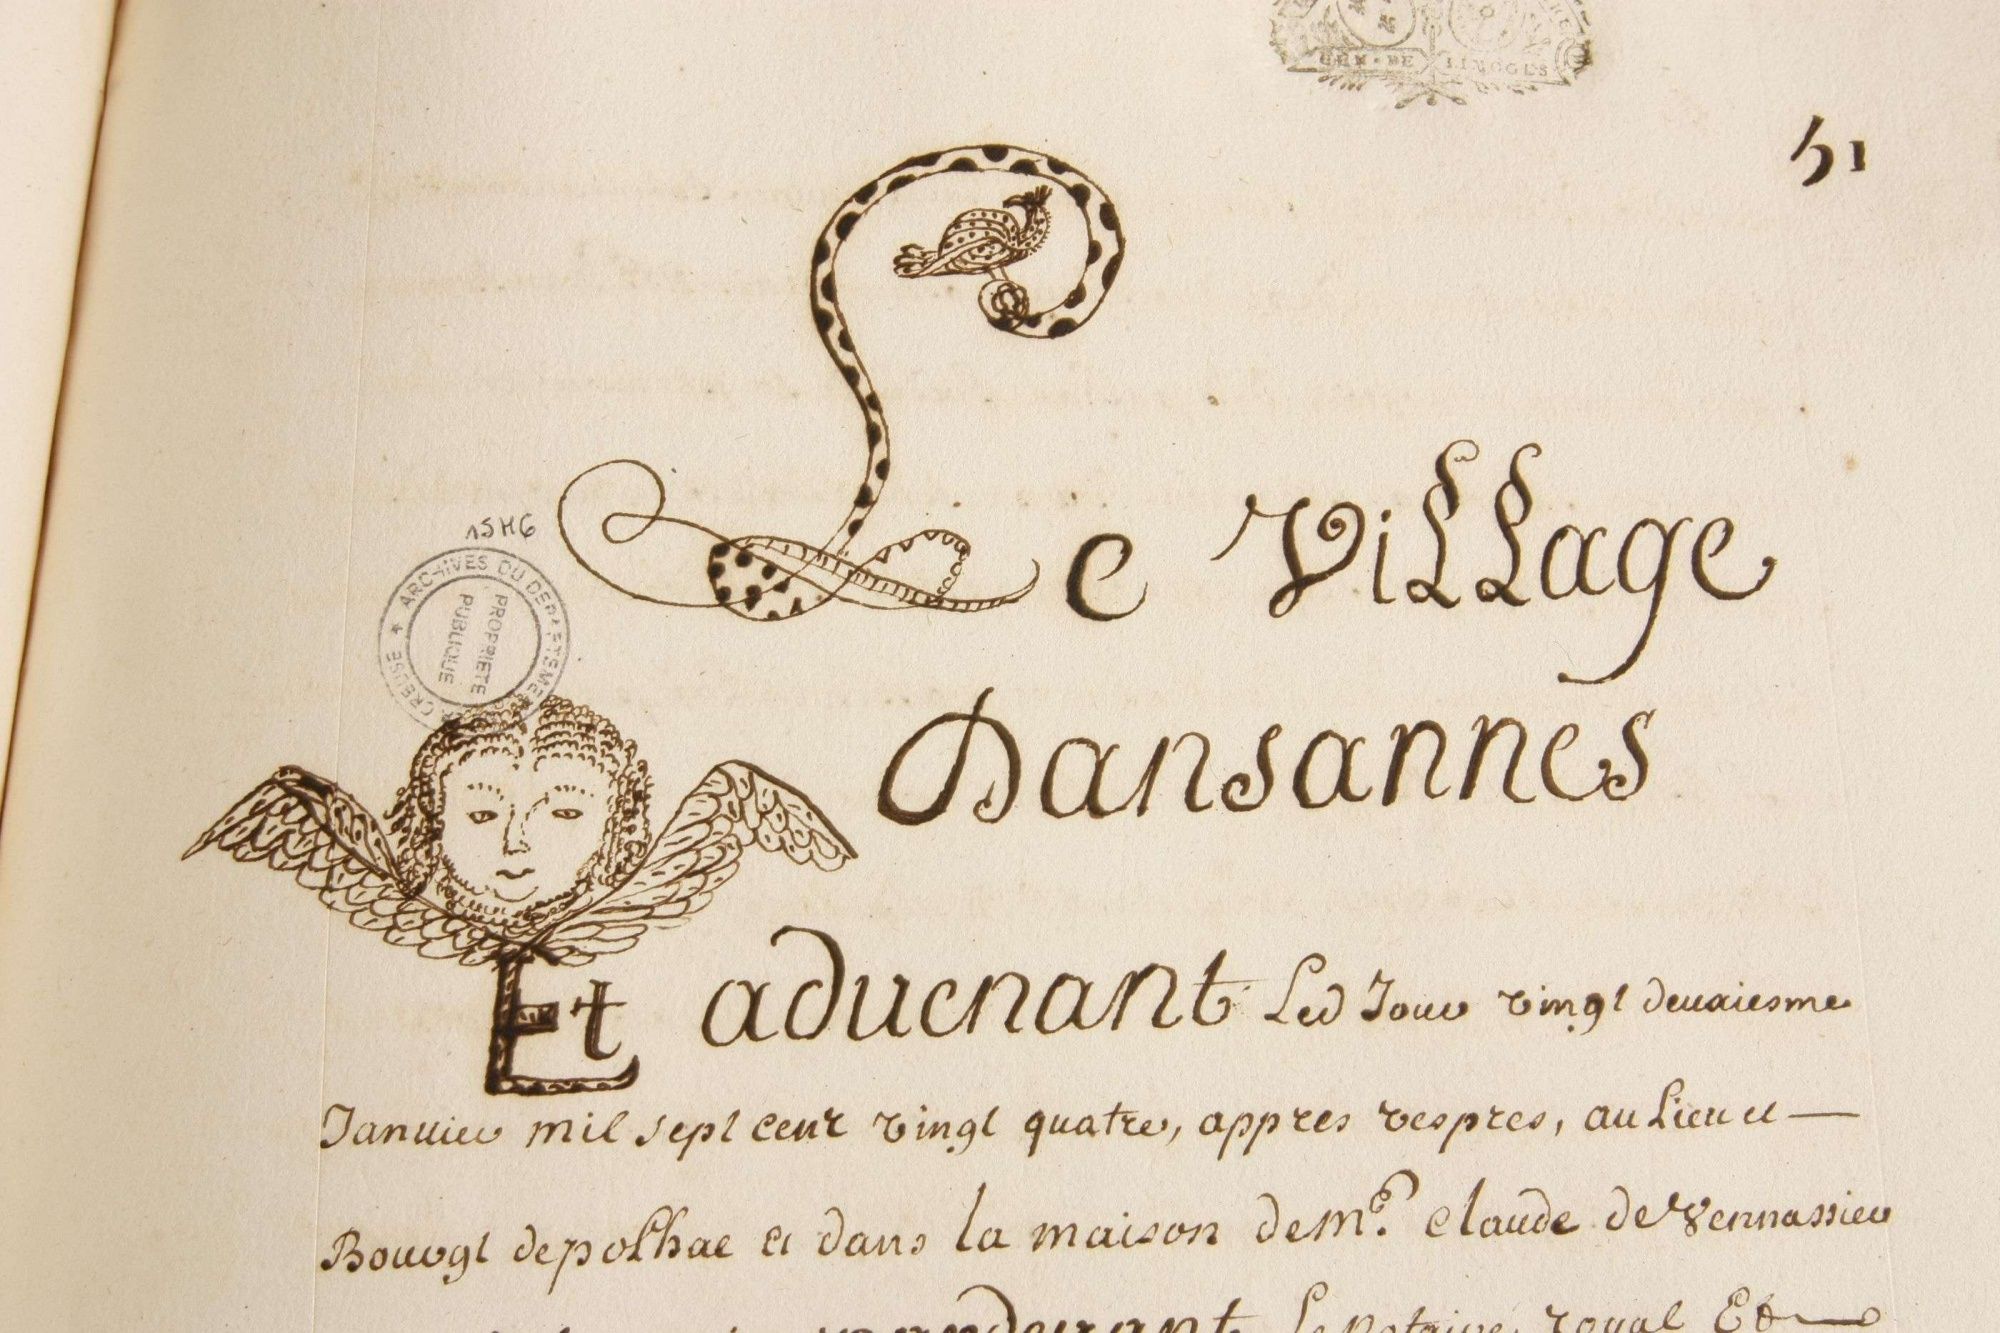 GEN · DE LIMOGES
51
Le Village
15H6
ARCHIVES DU DEPARTEMENT CREUSE
PROPRIETE
PUBLIQUE
Dansannes
Et aduenant Led Jour vingt deuxiesme
Januier mil sept cent vingt quatre, appres vespres, au Lieu et
Bourgt depolhac et dans la maison de me. claude de Vennassieu
Le Notaire royal Et